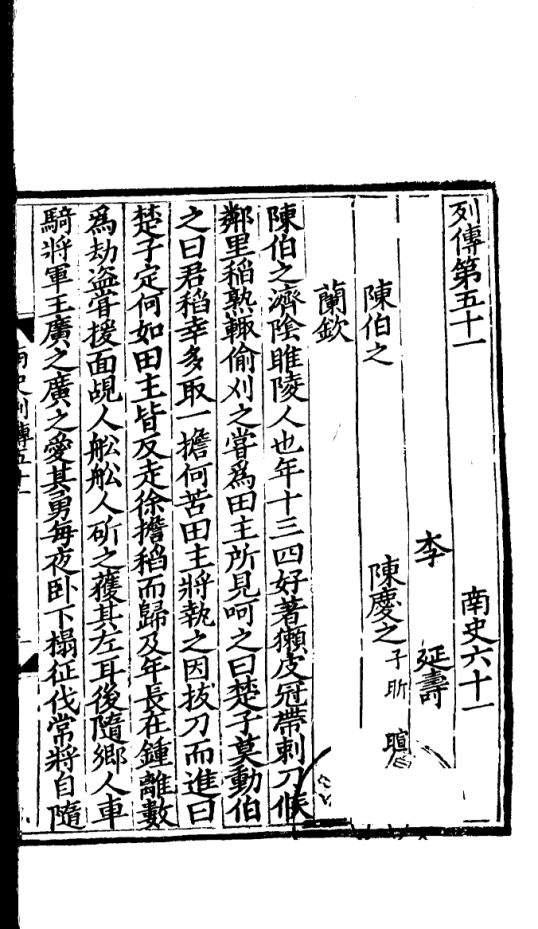 列傳第五十一
南史六十一
李 延壽
陳伯之
陳慶之 子昕 暄
蘭欽
陳伯之濟陰睢陵人也年十三四好著獺皮冠帶刺刀候
鄰里稻熟輒偷刈之嘗爲田主所見呵之曰楚子莫動伯
之曰君稻幸多取一擔何苦田主將執之因拔刀而進曰
楚子定何如田主皆反走徐擔稻而歸及年長在鍾離數
爲劫盜嘗援面覘人船船人斫之獲其左耳後隨鄉人車
騎將軍王廣之廣之愛其勇每夜卧下榻征伐常將自隨
南史列傳五十一